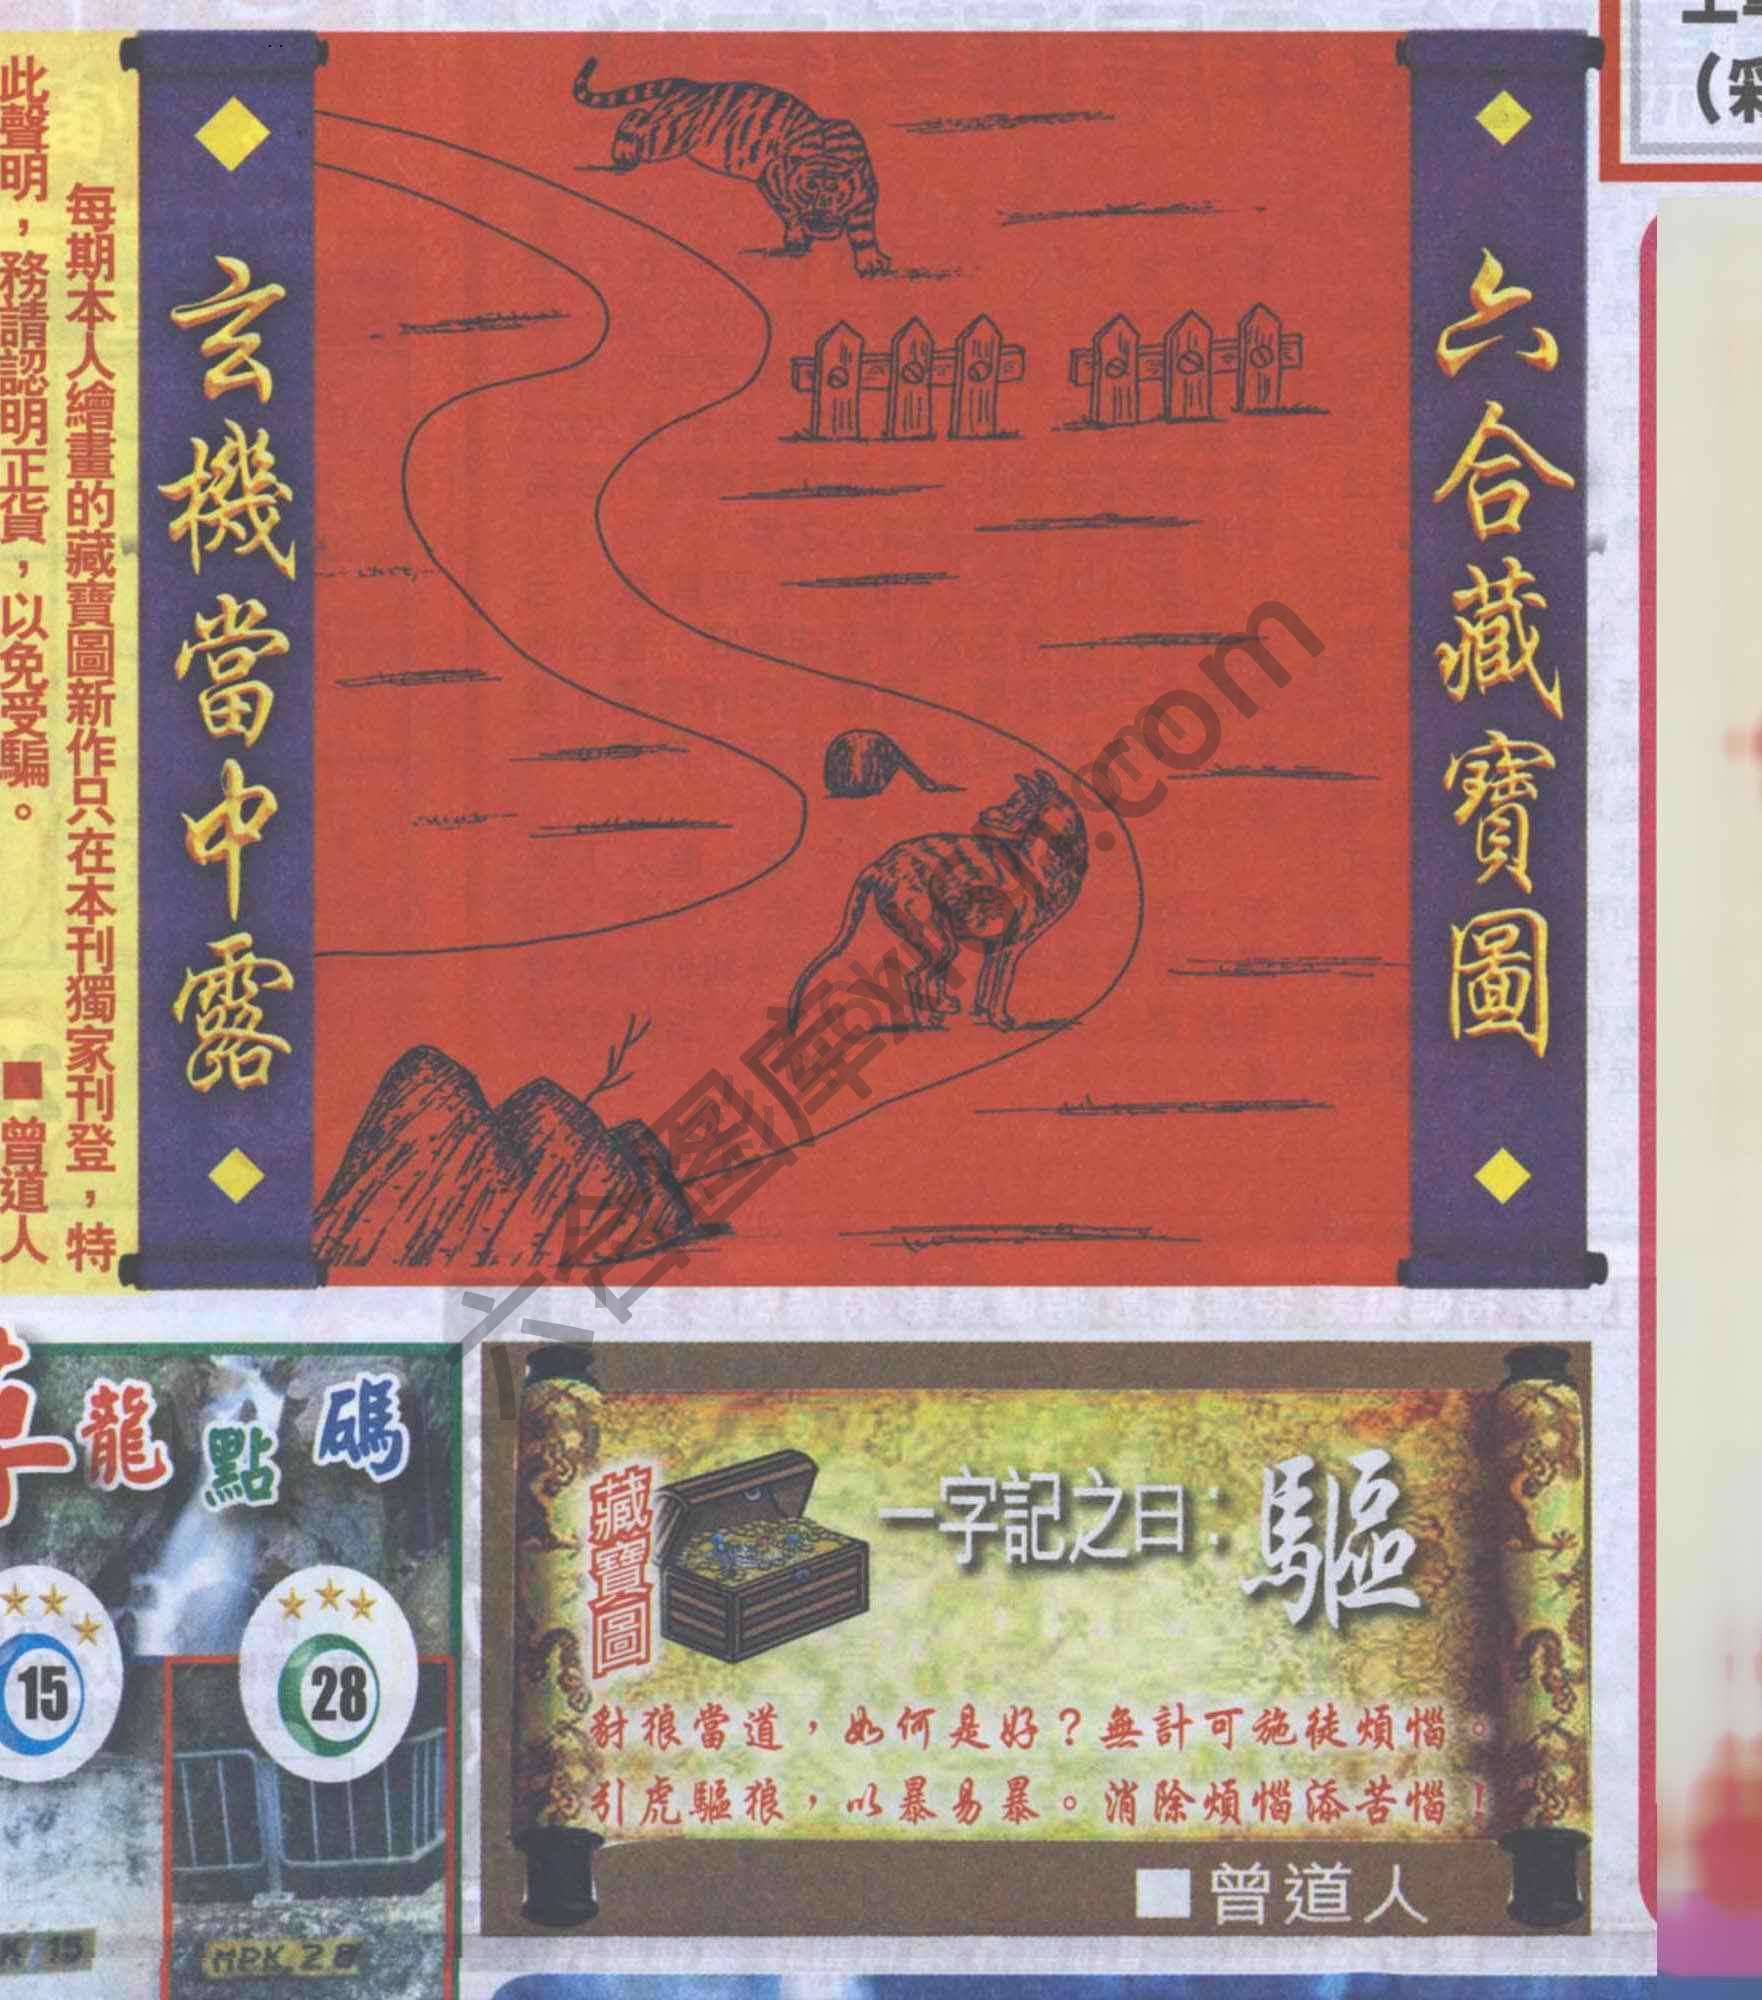 六合藏寶圖
玄機當中露
每期本人繪畫的藏寶圖新作只在本刊獨家刊登，特
此聲明，務請認明正貨，以免受騙。
■曾道人
龍點碼
15
28
K 15
MPK 28
藏寶圖
一字記之曰：驅
豺狼當道，如何是好？無計可施徒煩惱。
引虎驅狼，以暴易暴。消除煩惱添苦惱！
■曾道人